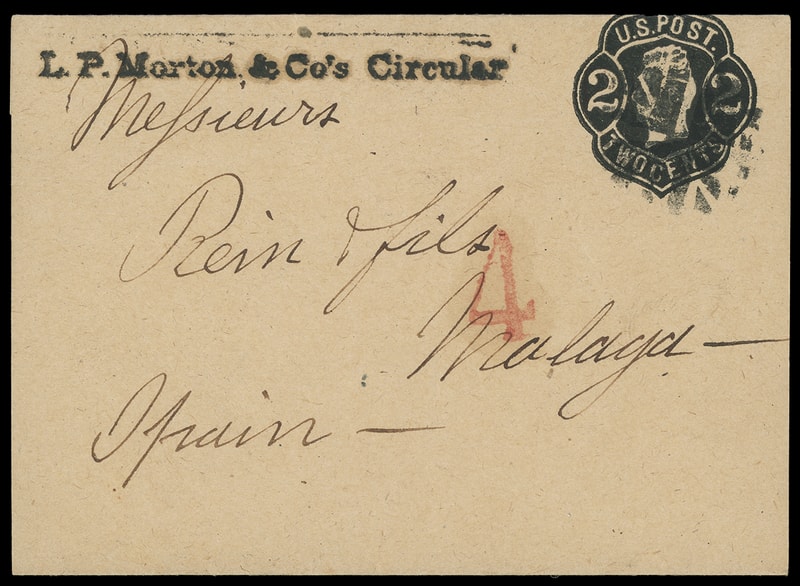 L. P. Morton, & Co's Circular
U.S. POST.
2 2
TWO CENTS
Messieurs
Rein & fils
4
Malaga —
Spain —